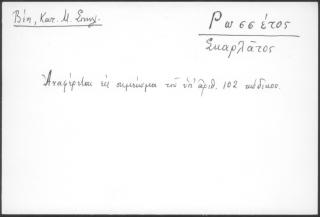 Βέη, Κατ. Μ. Σπηλ.
Ρωσσέτος
Σκαρλᾶτος
Ἀναφέρεται εἰς σημείωμα τοῦ ὑπ' ἀριθ. 102 κώδικος.